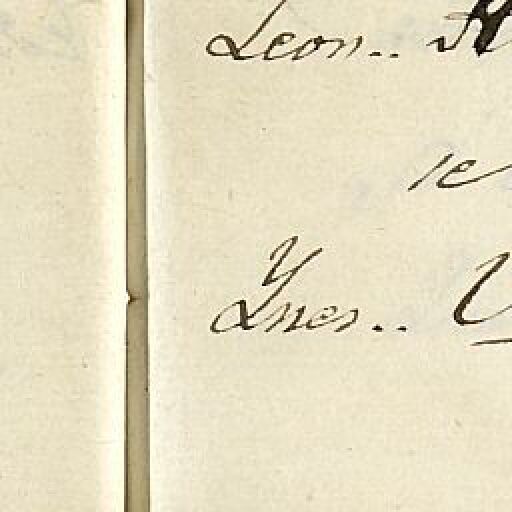 Leon..
ie
Ynes..